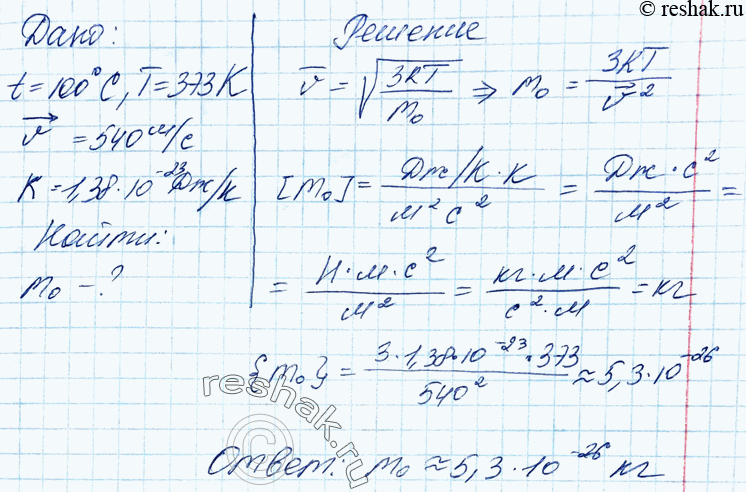 © reshak.ru
Дано:
t=100°C, T=373K
v⃗ =540 м/с
K=1,38·10⁻²³Дж/к
Найти:
m₀ -?
Решение
v̅ = √(3кT/m₀) ⇒ m₀ = 3КТ/v⃗²
[m₀] = (Дж/К·К)/(м² с²) = (Дж·с²)/м² =
= (Н·м·с²)/м² = (кг·м·с²)/(с²·м) = кг
{m₀} = (3·1,38·10⁻²³·373)/540² ≈ 5,3·10⁻²⁶
Ответ: m₀ ≈ 5,3·10⁻²⁶ кг
reshak.ru